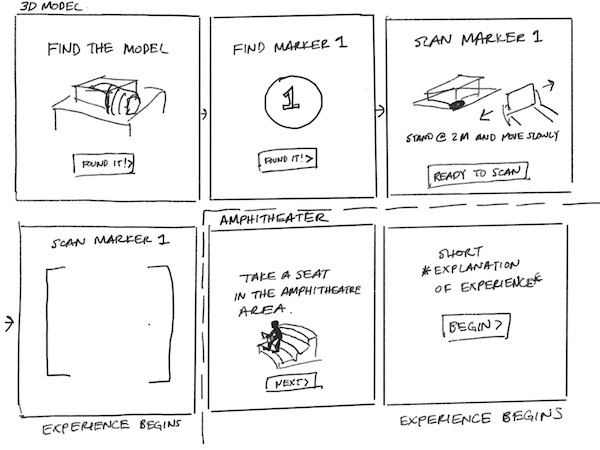 3D MODEL
FIND THE MODEL
FOUND IT!>
FIND MARKER 1
1
FOUND IT!>
SCAN MARKER 1
STAND @ 2M AND MOVE SLOWLY
READY TO SCAN
SCAN MARKER 1
EXPERIENCE BEGINS
AMPHITHEATER
TAKE A SEAT
IN THE AMPHITHEATRE
AREA.
NEXT>
SHORT
*EXPLANATION
OF EXPERIENCE*
BEGIN>
EXPERIENCE BEGINS